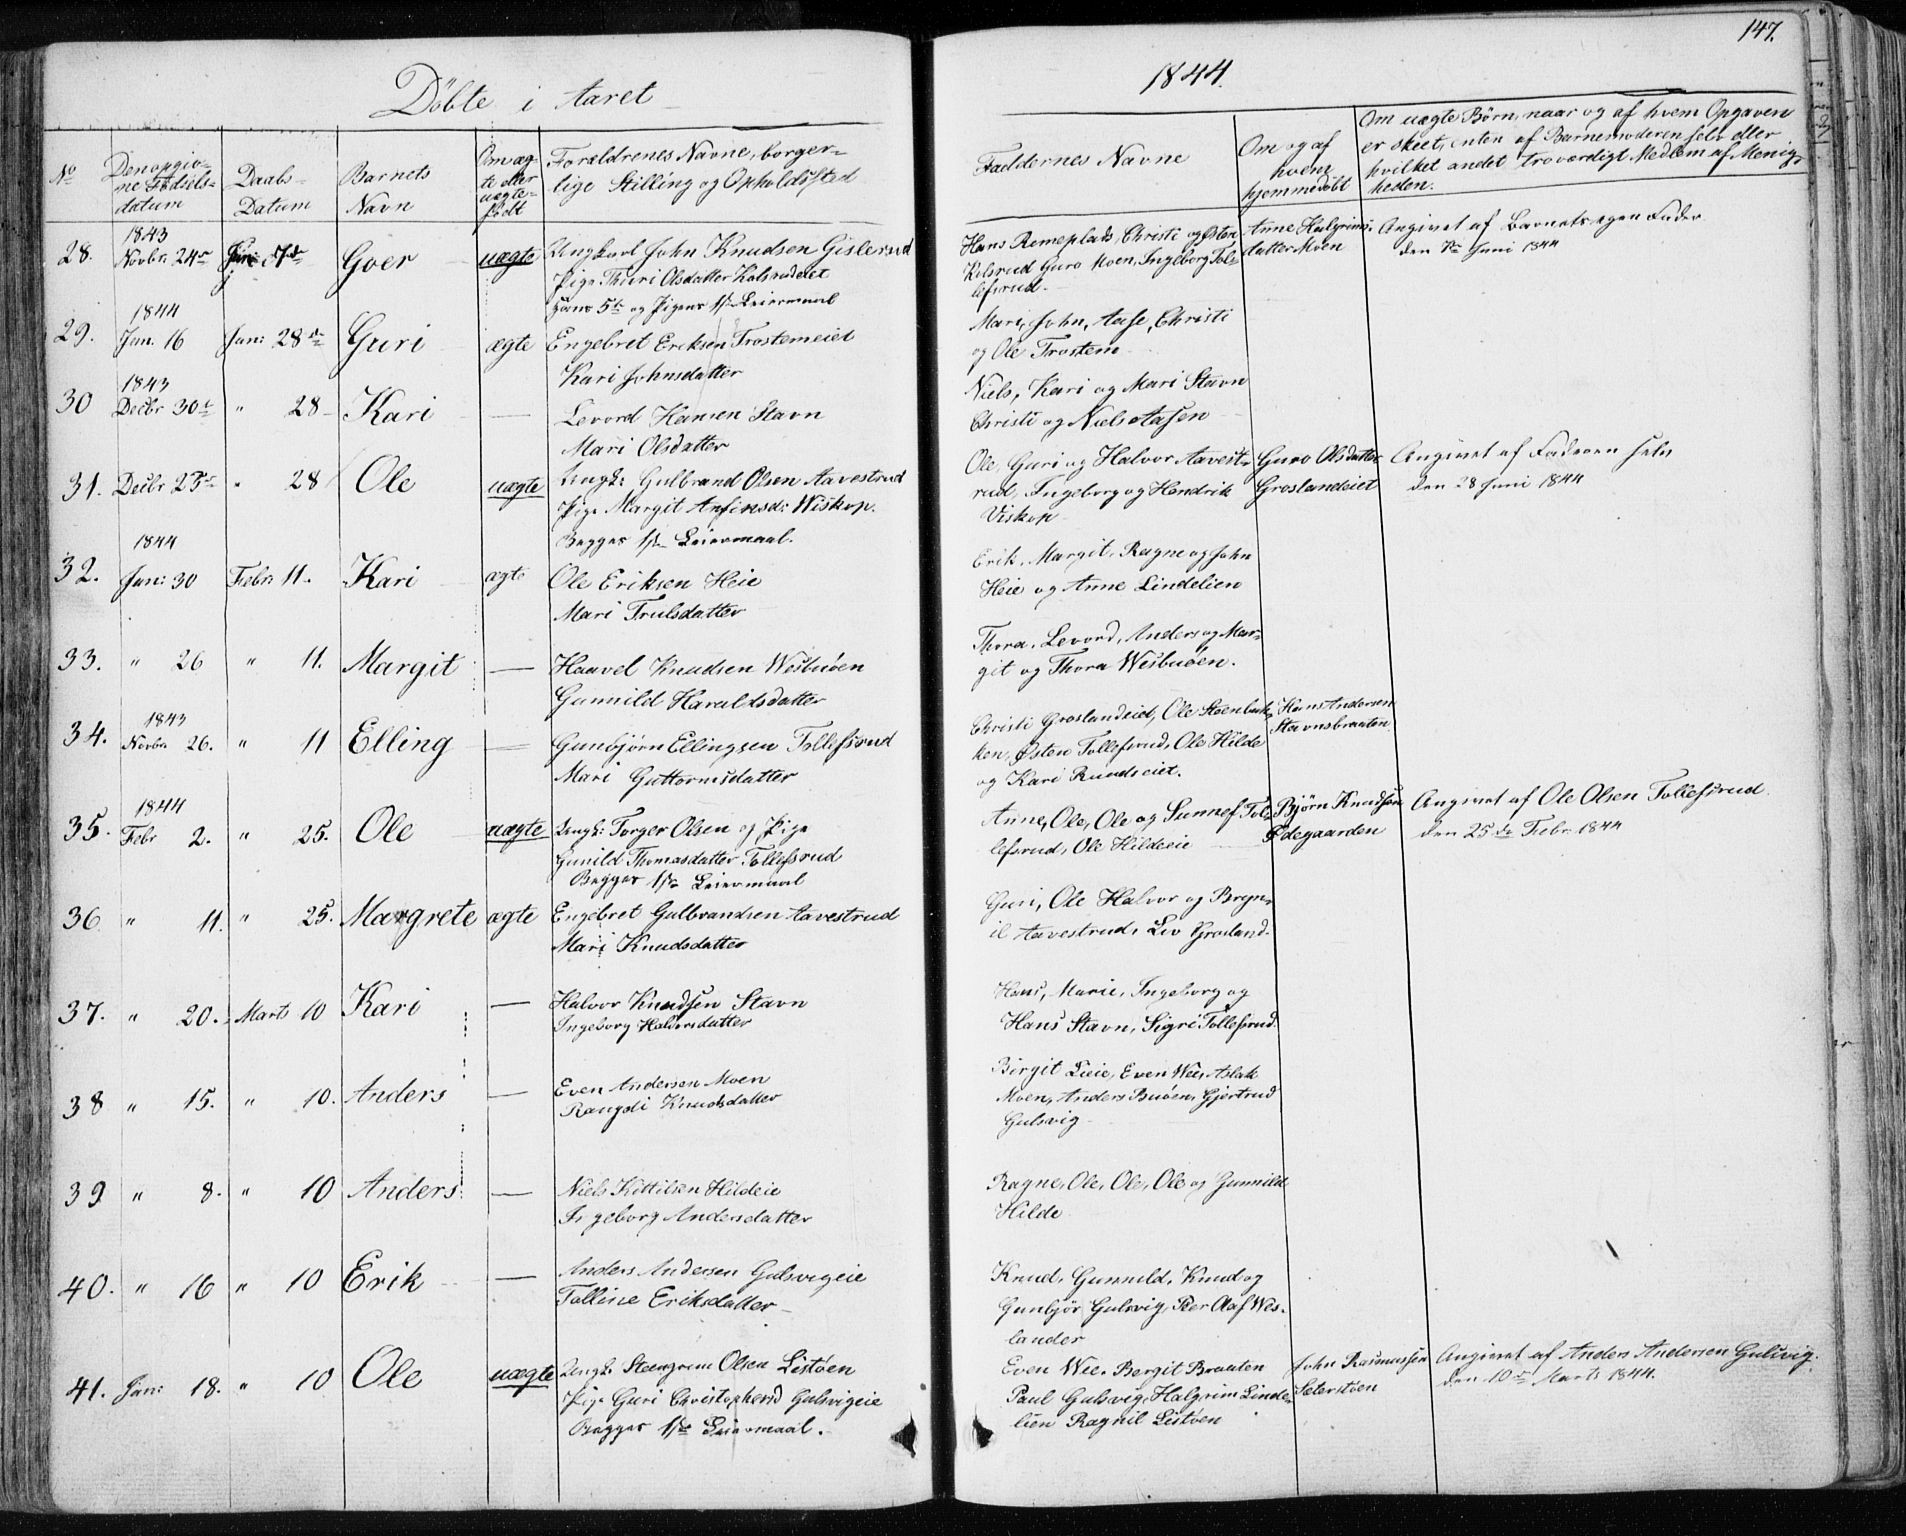 147.
Döbte i Aaret 1844.
No
Den opgiv=
ne Födsels=
datum
Daabs=
Datum
Barnets
Navn
Om æg=
te eller
uægte=
født
Forældrenes Navne, borger=
lige Stilling og Opholdssted
Faddernes Navne
Om og af
hvem
hjemmedøbt
Om uægte Børn, naar og af hvem Opgaven
er skeet, enten af Barnemoderen selv eller
hvilket andet troværdigt Medlem af Menig=
heden.
1843
28. Novbr 24de Goer uægte Ungkarl John Knudsen Gislerud
Pige Thuri Olsdatter Kolsrudeiet
Hans 5te og Pigens 1ste Leiermaal
Hans Remeplads, Christi og Østen
Kolsrud Guro Moen, Ingeborg Tol=
lefsrud.
Anne Halgrims=
datter Moen
Angivet af Barnets egen Fader
den 7de Juni 1844
1844
29. Jan. 16 Jan: 28de Guri ægte Engebret Eriksen Trostemeiet
Kari Johnsdatter
Mari, John, Aase, Christi
og Ole Trostem
1843
30 Decbr 30te " 28 Kari — Levord Hansen Stavn
Mari Olsdatter
Niels, Kari og Mari Stavn
Christi og Niels Aasen
31. Decbr 23de " 28 Ole uægte Ungk: Gulbrand Olsen Aavestrud
Pige Margit Anfinsd: Wiskop.
Begges 1ste Leiermaal.
Ole, Guri og Halvor Aavest=
rud, Ingeborg og Hendrik
Viskop
Guro Olsdatter
Groslandseiet
Angivet af Faderen selv
den 28 Juni 1844
1844
32. Jan: 30 Febr: 11. Kari ægte Ole Eriksen Heie
Mari Trulsdatter
Erik, Margit, Ragne og John
Heie og Anne Lindelien
33. " 26 " 11. Margit — Haavel Knudsen Wesbuøen
Gunnild Haraldsdatter
Thora, Levord, Anders og Mar=
git og Thora Wesbuøen.
1843
34. Novbr. 26. " 11 Elling — Gunbjørn Ellingsen Tollefsrud
Mari Guttormsdatter
Christi Groslandeiet, Ole Steenbak=
ken, Østen Tollefsrud, Ole Hilde
og Kari Rudseiet.
Hans Andersen
Stavnsbraaten
1844
35. Febr 2. " 25. Ole uægte Ungk: Torger Olsen og Pige
Gunild Thomasdatter Tollefsrud
Begges 1ste Leiermaal
Anne, Ole, Ole og Sunnef Tol=
lefsrud, Ole Hildeeie
Bjørn Knudsen
Ødegaarden
Angivet af Ole Olsen Tollefsrud.
den 25de Febr 1844
36 " 11. " 25. Margrete ægte Engebret Gulbrandsen Aavestrud
Mari Knudsdatter
Guri, Ole Halvor og Bryn=
il Aavestrud, Liv Grosland.
37. " 20. Marts 10 Kari — Halvor Knudsen Stavn
Ingeborg Halvorsdatter
Hans, Marie, Ingeborg og
Hans Stavn, Sigri Tollefsrud.
38 " 15. " 10. Anders — Even Andersen Moen
Rangdi Knudsdatter
Birgit Lieie, Even Wee, Aslak
Moen, Anders Buøen, Gjertrud
Gulsvig
39 " 8. " 10 Anders — Niels Kittilsen Hildeie
Ingeborg Andersdatter
Ragne, Ole, Ole, Ole og Gunnild
Hilde
40. " 16 " 10 Erik — Anders Andersen Gulsvigeie
Tolline Eriksdatter
Knud, Gunnild, Knud og
Gunbjør Gulsvig, Peer Olaf Wes=
lander
41. Jan: 18. " 10 Ole uægte Ungk: Steengrim Olsen Listøen
Pige Guri Christophersd Gulsvigeie
Begges 1ste Leiermaal.
Even Wee. Bergit Braaten
Paul Gulsvig, Halgrim Linde=
lien Ragnil Listøen
John Rasmussen
Seterstøen
Angivet af Anders Andersen Gulsvig.
den 10de Marts 1844.